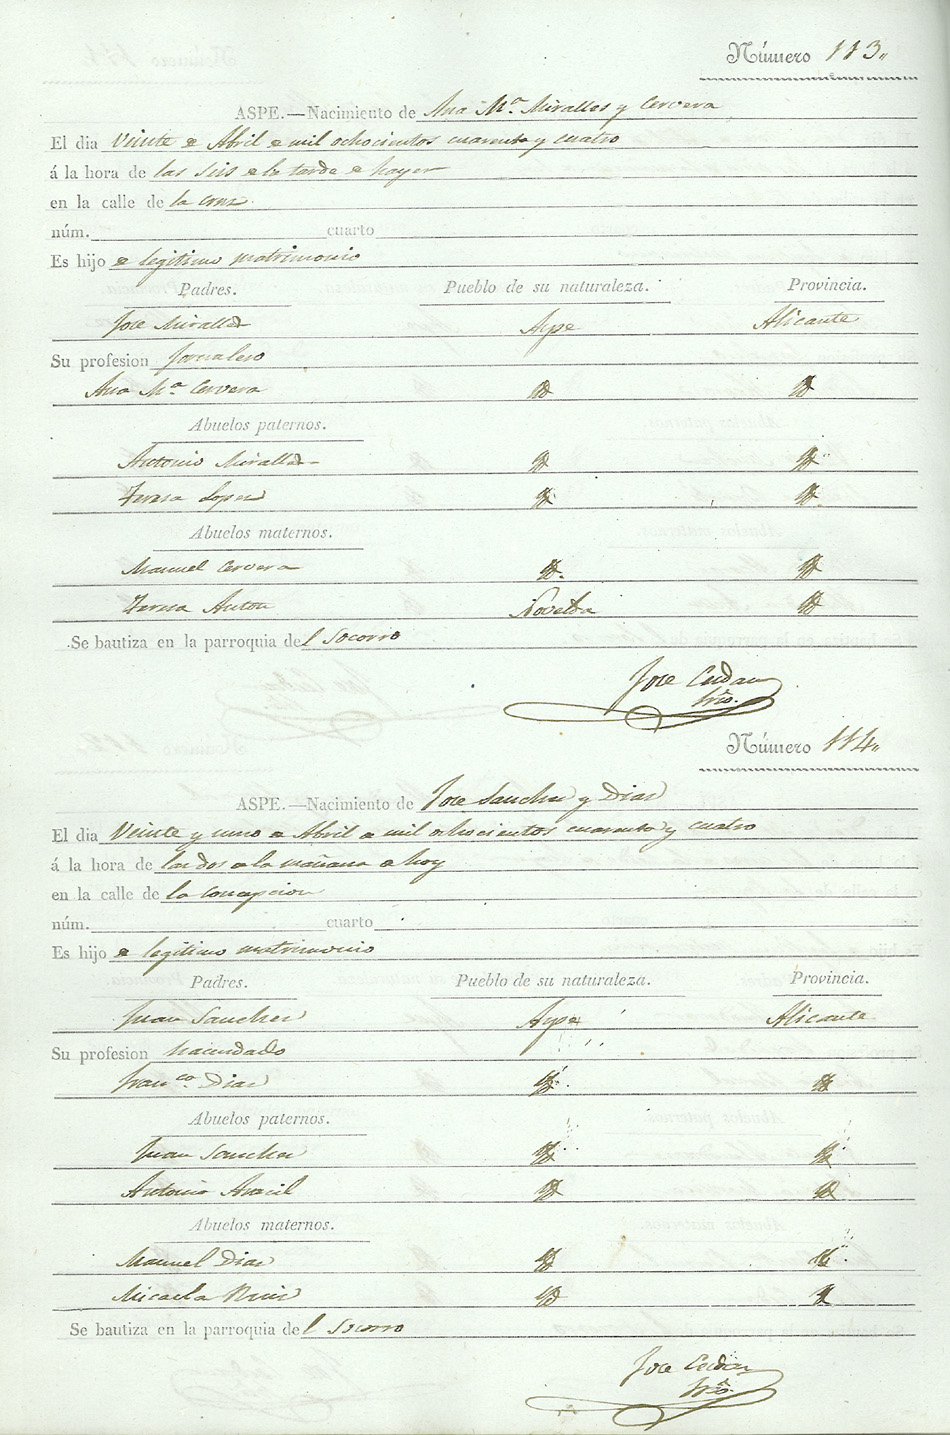 Número 113.
ASPE.—Nacimiento de Ana Mª. Miralles y Cervera
El dia Veinte de Abril de mil ochocientos cuarenta y cuatro
á la hora de las seis de la tarde de hayer
en la calle de la Cruz.
núm. cuarto
Es hijo de legitimo matrimonio
Padres. Pueblo de su naturaleza. Provincia.
Jose Miralles Aspe Alicante
Su profesion Jornalero
Ana Mª Cervera Id Id
Abuelos paternos.
Antonio Miralles Id Id
Teresa Lopez Id Id
Abuelos maternos.
Manuel Cervera Id. Id
Teresa Anton Novelda Id
Se bautiza en la parroquia del Socorro
Jose
Srio.
Número 114.
ASPE.—Nacimiento de Jose Sanchez y Diaz
El dia Veinte y uno de Abril de mil ochocientos cuarenta y cuatro
á la hora de las dos de la mañana de hoy
en la calle de la Concepcion
núm. cuarto
Es hijo de legitimo matrimonio
Padres. Pueblo de su naturaleza. Provincia.
Juan Sanchez Aspe Alicante
Su profesion hacendado
Franca Diaz Id Id
Abuelos paternos.
Juan Sanchez Id Id
Antonia Aracil Id Id
Abuelos maternos.
Manuel Diaz Id Id
Micaela Ruiz Id Id
Se bautiza en la parroquia del Socorro
Jose
Srio.